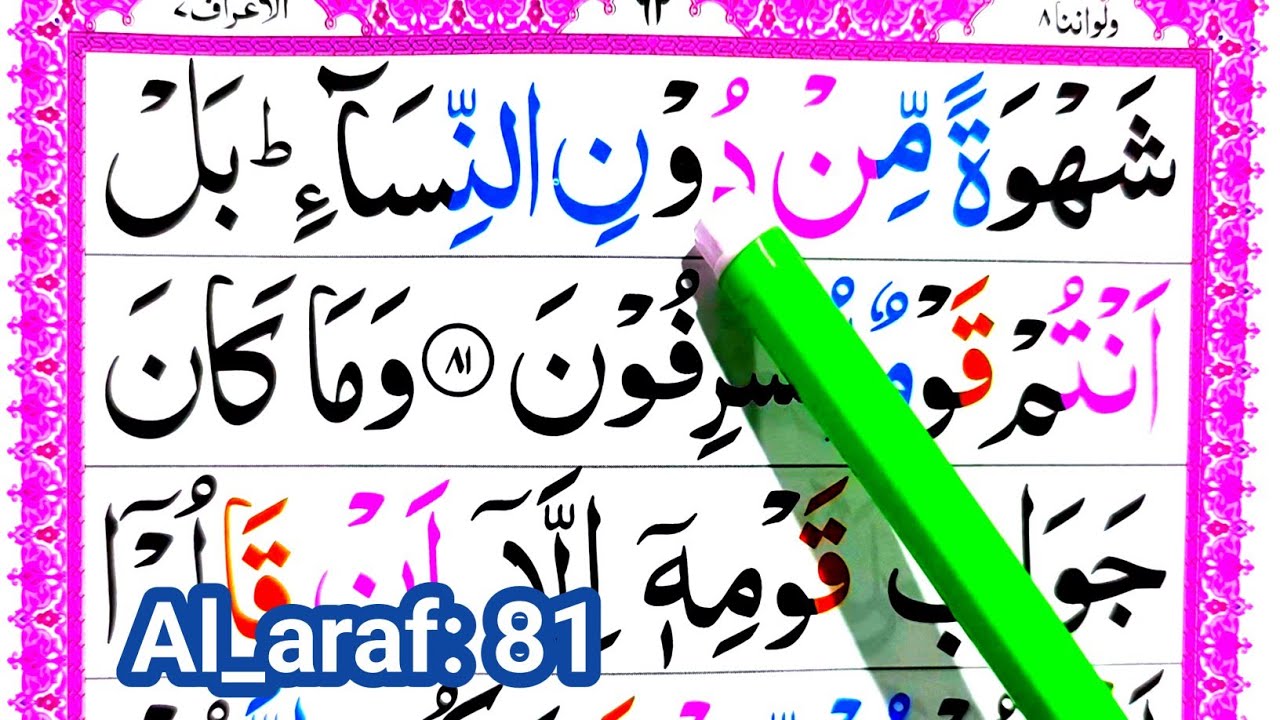 ولواننا ٨ ٦٢ الاعراف ٧
شَهْوَةً مِّنْ دُوْنِ النِّسَآءِ ؕ بَلْ
اَنْتُمْ قَوْمٌ مُّسْرِفُوْنَ ﴿٨١﴾ وَمَا كَانَ
جَوَابَ قَوْمِهٖۤ اِلَّاۤ اَنْ قَالُوْۤا
Al_araf: 81